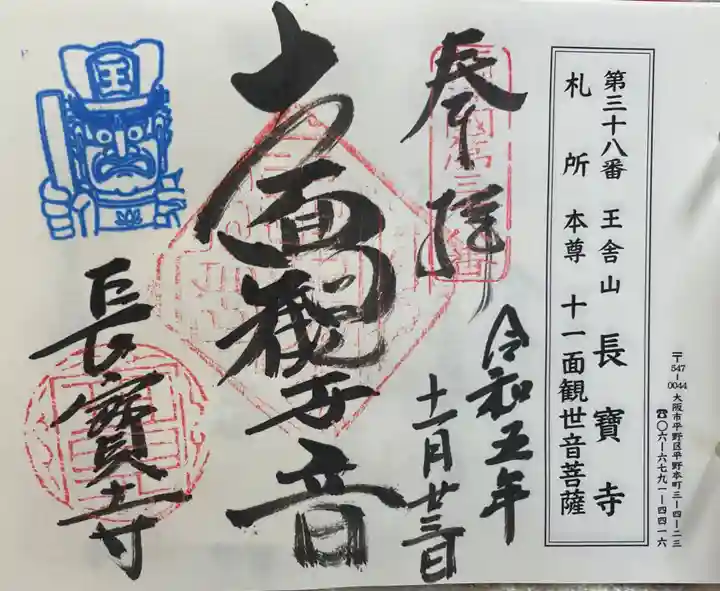 〒547-0044 大阪市平野区平野本町三-四-二三
☎〇六-六七九一-四四一六
第三十八番 王舎山 長寶寺
札所本尊 十一面観世音菩薩
奉拝
令和五年
十一月廿三日
十一面観世音
長寶寺
王